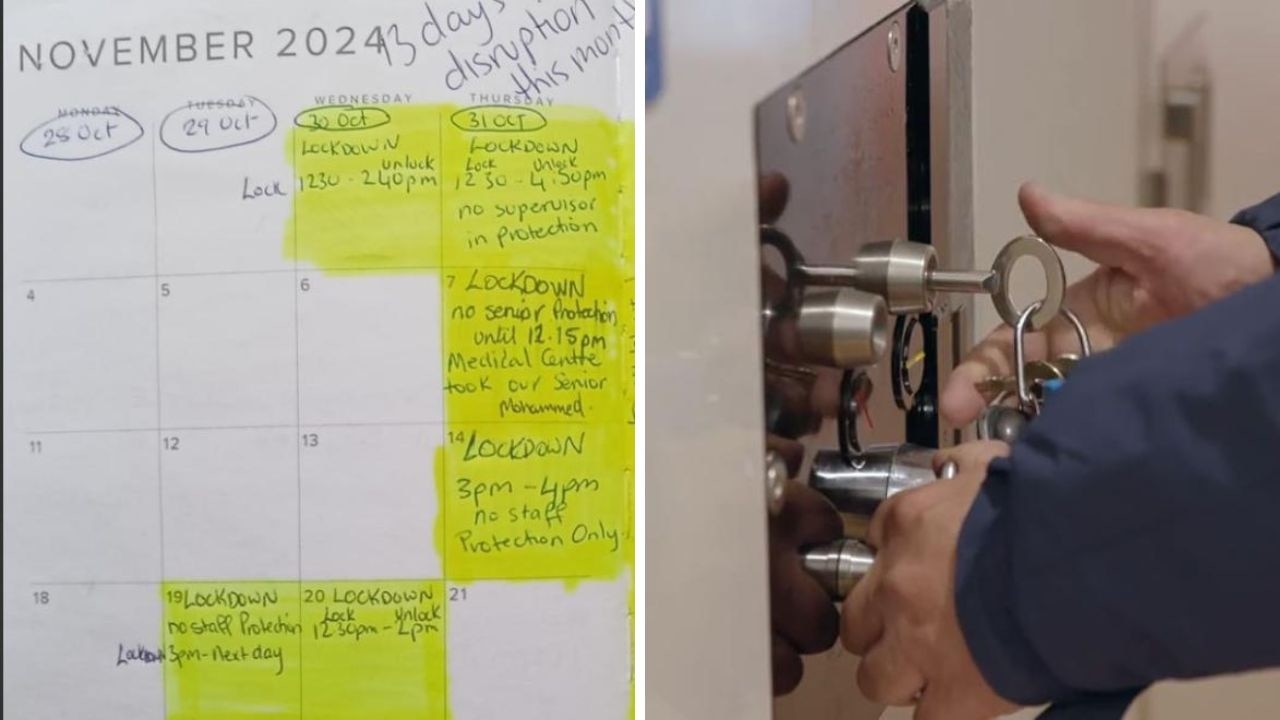 NOVEMBER 2024
13 days
disruption
this month
MONDAY TUESDAY WEDNESDAY THURSDAY
28 Oct 29 Oct 30 Oct 31 OCT
LOCKDOWN
unlock
Lock 1230 - 240pm
LOCKDOWN
Lock Unlock
12 30 - 4.30pm
no supervisor
in protection
4 5 6 7 LOCKDOWN
no senior Protection
until 12.15pm
Medical Centre
took our Senior
Mohammed.
11 12 13 14 LOCKDOWN
3pm - 4pm
no staff
Protection Only.
18 19 LOCKDOWN
no staff Protection
Lockdown 3pm - Next day
20 LOCKDOWN
Lock Unlock
1230pm - 2pm
21